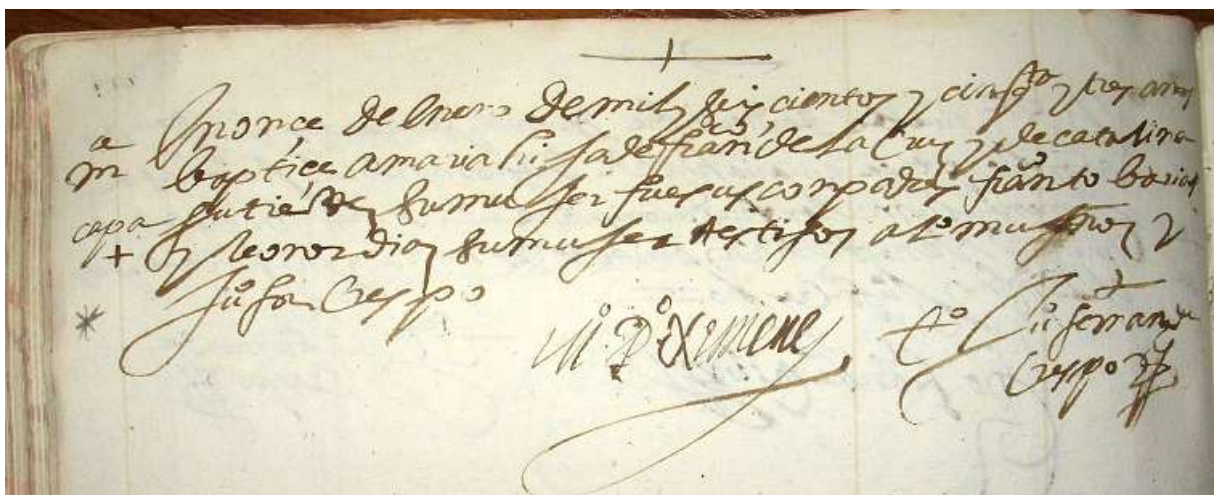 En onçe de Enero de mil y seisçientos y cinqta y tres años
m baptiçe a maria hija de fran de la Cruz y de catalina
capa gutierrez su muger fue sus conpadres
+ y leonor diaz su muger testigos al muñoz y
Ju fer Crespo
M P Ximenez to Ju ferrandz
Crespo